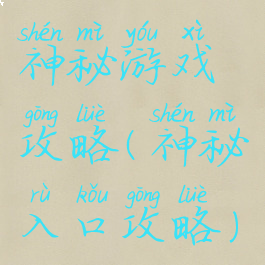 shén mì yóu xì
神秘游戏
gōng lüè shén mì
攻略(神秘
rù kǒu gōng lüè
入口攻略)